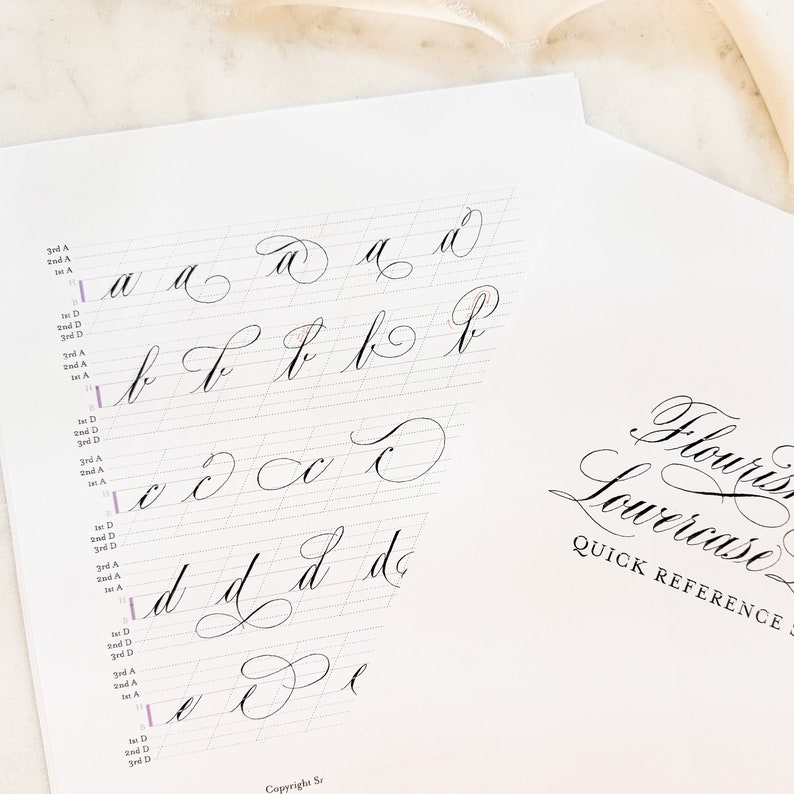 3rd A
2nd A
1st A
H
a a a a a
B
1st D
2nd D
3rd D
3rd A
2nd A
1st A
H
b b b b b
B
1st D
2nd D
3rd D
3rd A
2nd A
1st A
H
c c c c
B
1st D
2nd D
3rd D
3rd A
2nd A
1st A
H
d d d d
B
1st D
2nd D
3rd D
3rd A
2nd A
1st A
H
e e e
B
1st D
2nd D
3rd D
Copyright
Flourish
Lowercase L
QUICK REFERENCE S